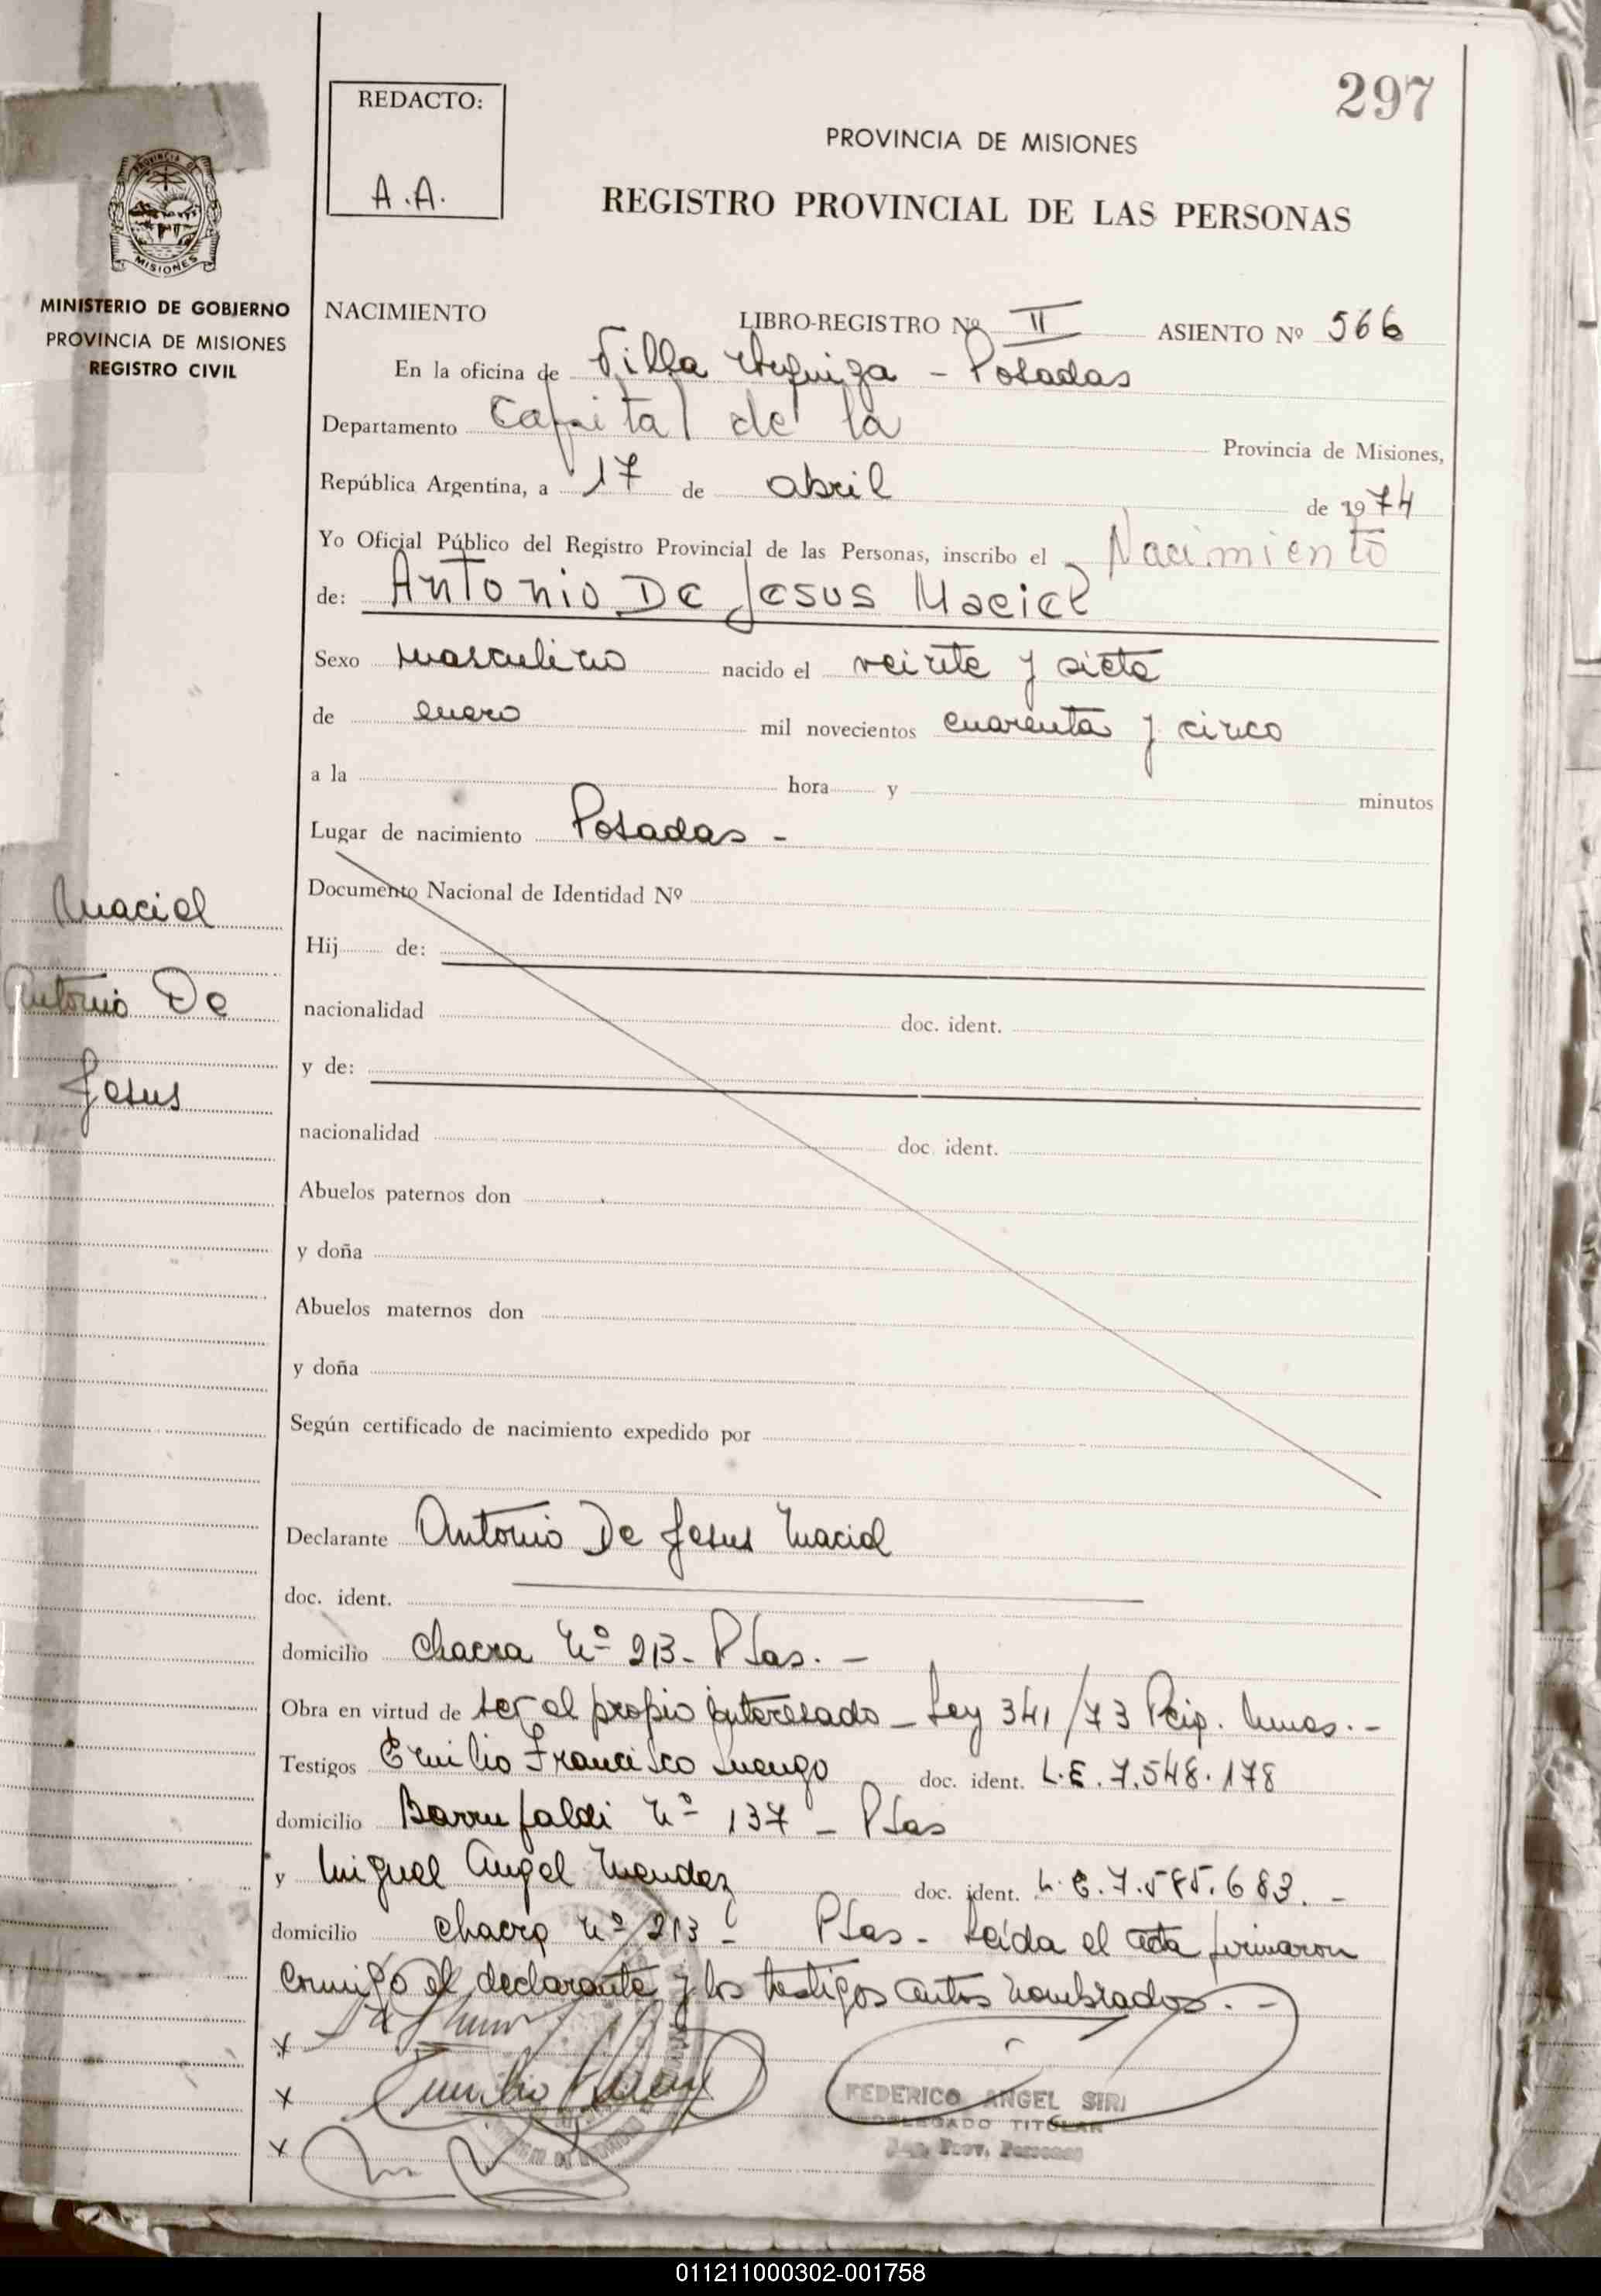 297
REDACTO:
A.A.
PROVINCIA DE MISIONES
REGISTRO PROVINCIAL DE LAS PERSONAS
PROVINCIA DE
MISIONES
MINISTERIO DE GOBIERNO
PROVINCIA DE MISIONES
REGISTRO CIVIL
NACIMIENTO LIBRO-REGISTRO Nº II ASIENTO Nº 566
En la oficina de Villa Urquiza - Posadas
Departamento Capital de la Provincia de Misiones,
República Argentina, a 17 de abril de 1974
Yo Oficial Público del Registro Provincial de las Personas, inscribo el Nacimiento
de: Antonio De Jesus Maciel
Sexo masculino nacido el veinte y siete
de enero mil novecientos cuarenta y cinco
a la hora y minutos
Lugar de nacimiento Posadas -
Documento Nacional de Identidad Nº
Maciel
Antonio De
Jesus
Hij de:
nacionalidad doc. ident.
y de:
nacionalidad doc. ident.
Abuelos paternos don
y doña
Abuelos maternos don
y doña
Según certificado de nacimiento expedido por
Declarante Antonio De Jesus Maciel
doc. ident.
domicilio Chacra Nº 213 - Pdas. -
Obra en virtud de ser el propio interesado - Ley 341/73
Testigos Emilio Francisco Luengo doc. ident. L.E. 7.548.178
domicilio Barrufaldi Nº 137 - Pdas
y Miguel Angel Mendez doc. ident. L.E. 7.585.683. -
domicilio Chacra Nº 213 - Pdas - Leída el acta firmaron
conmigo el declarante y los testigos antes nombrados. -
x
x
x
FEDERICO ANGEL SIRI
DELEGADO TITULAR
Prov. Personas
011211000302-001758